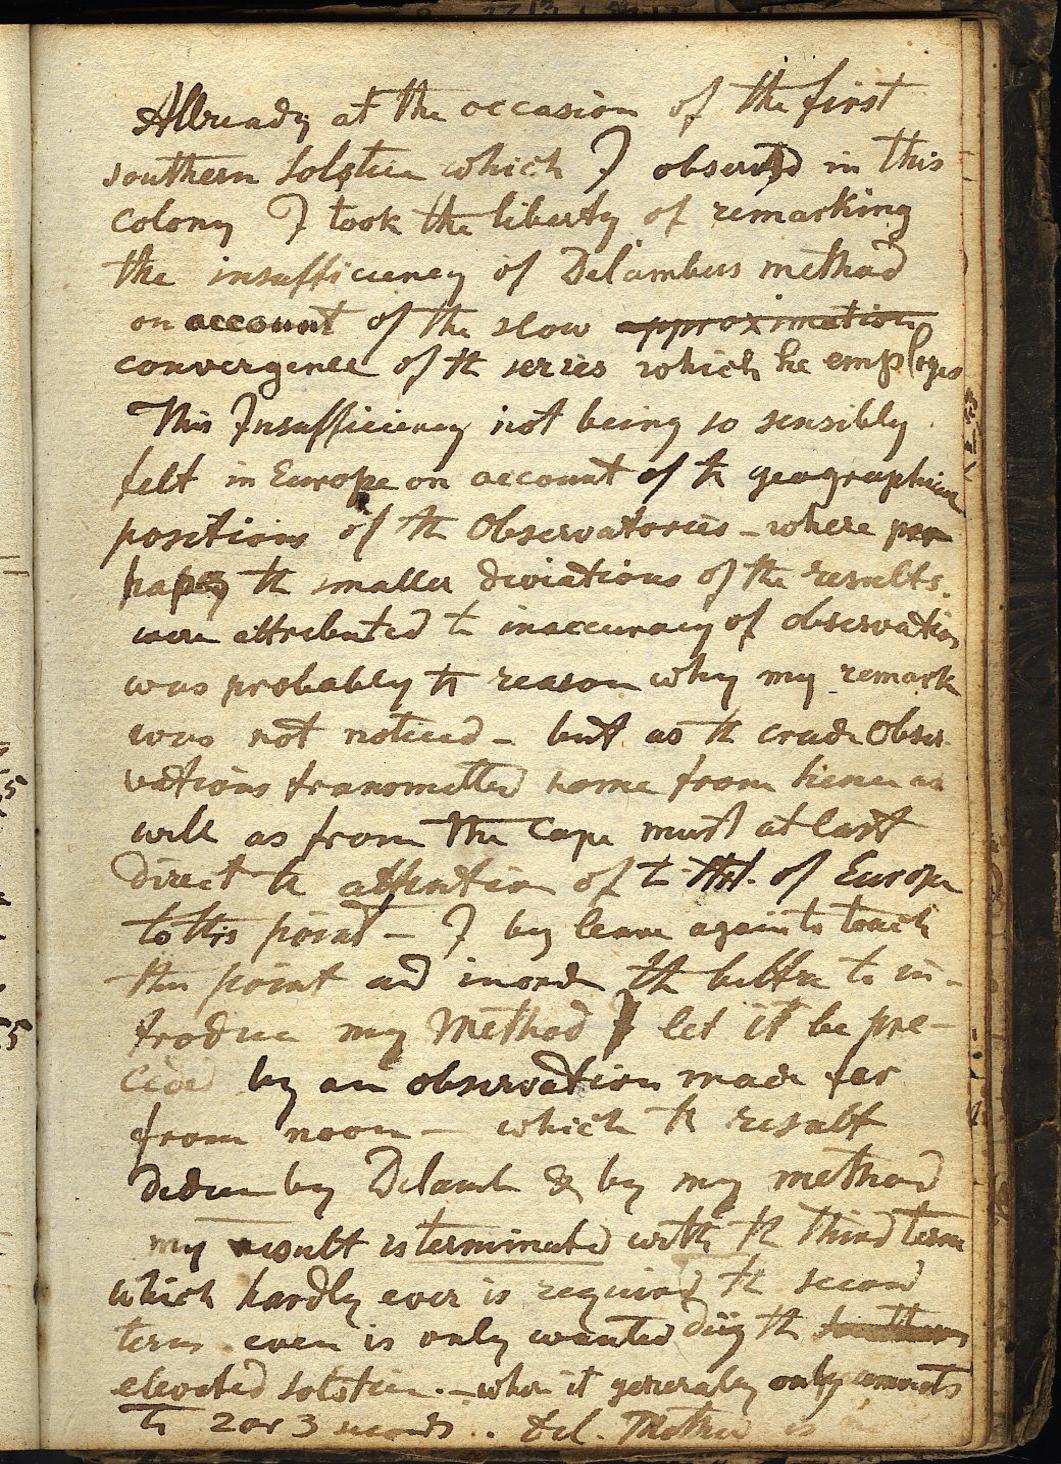 Allready at the occasion of the first
southern Solstice which I observed in this
Colony I took the liberty of remarking
the insufficiency of Delambers method
on account of the slow approximation
convergence of th series which he employs
This Insufficiency not being so sensibly
felt in Europe on account of th geographical
positions of th Observatories - where per
haps th smaller deviations of the results
were attributed to inaccuracy of observation
was probably th reason why my remark
was not noticed - but as th crude Obser-
vations transmitted home from hence as
well as from the Cape must at last
direct th attention of th Ast. of Europe
to this point - I beg leave again to touch
this point and in order th better to in-
troduce my Method I let it be pre-
ceded by an observation made far
from noon - which th result
deduced by Delamb & by my method
my result is terminated with th third term
which hardly ever is required th second
term even is only wanted th southern
elevated solstice. - when it generaly only amounts
to 2 or 3 seconds .. Method is